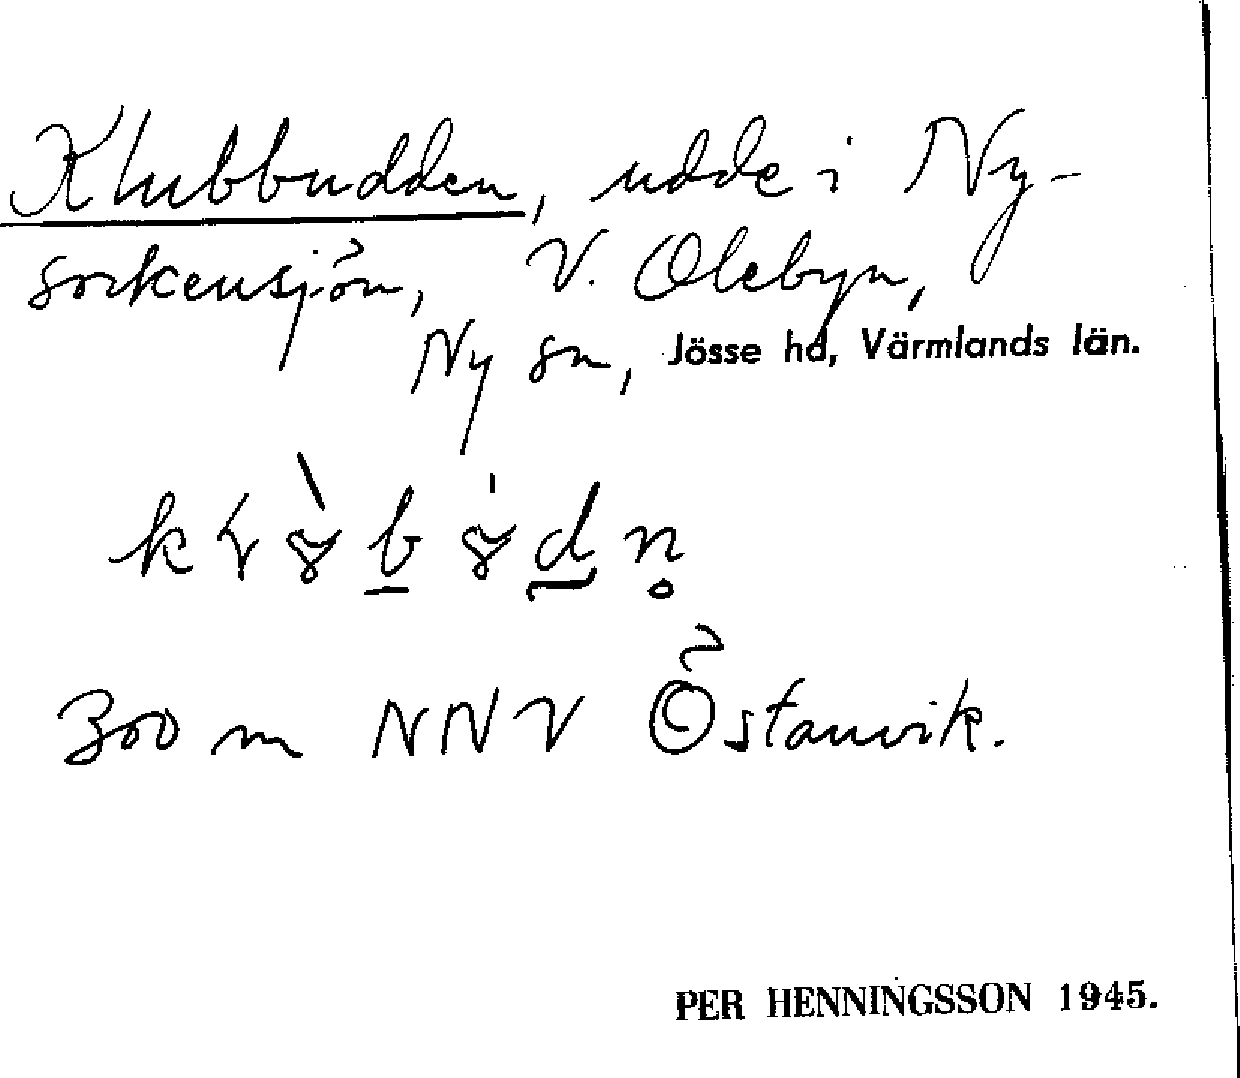 Klubbudden, udde i Ny-
sockensjön, V. Olebyn,
Ny sn, Jösse hd, Värmlands län.
300 m NNV Östanvik.
PER HENNINGSSON 1945.